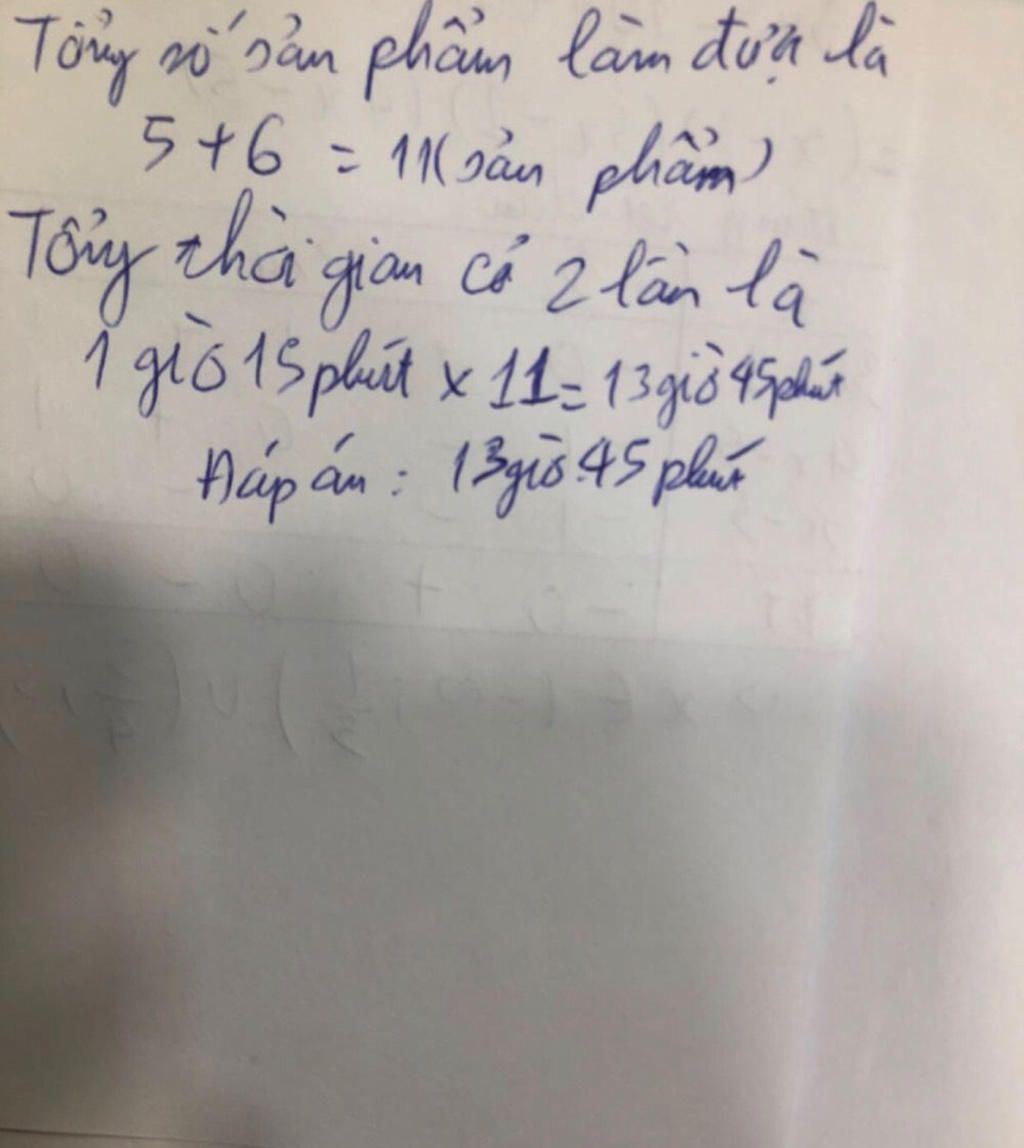 Tổng số sản phẩm làm được là
5 + 6 = 11 (sản phẩm)
Tổng thời gian cả 2 lần là
1 giờ 15 phút x 11 = 13 giờ 45 phút
Đáp án : 13 giờ 45 phút